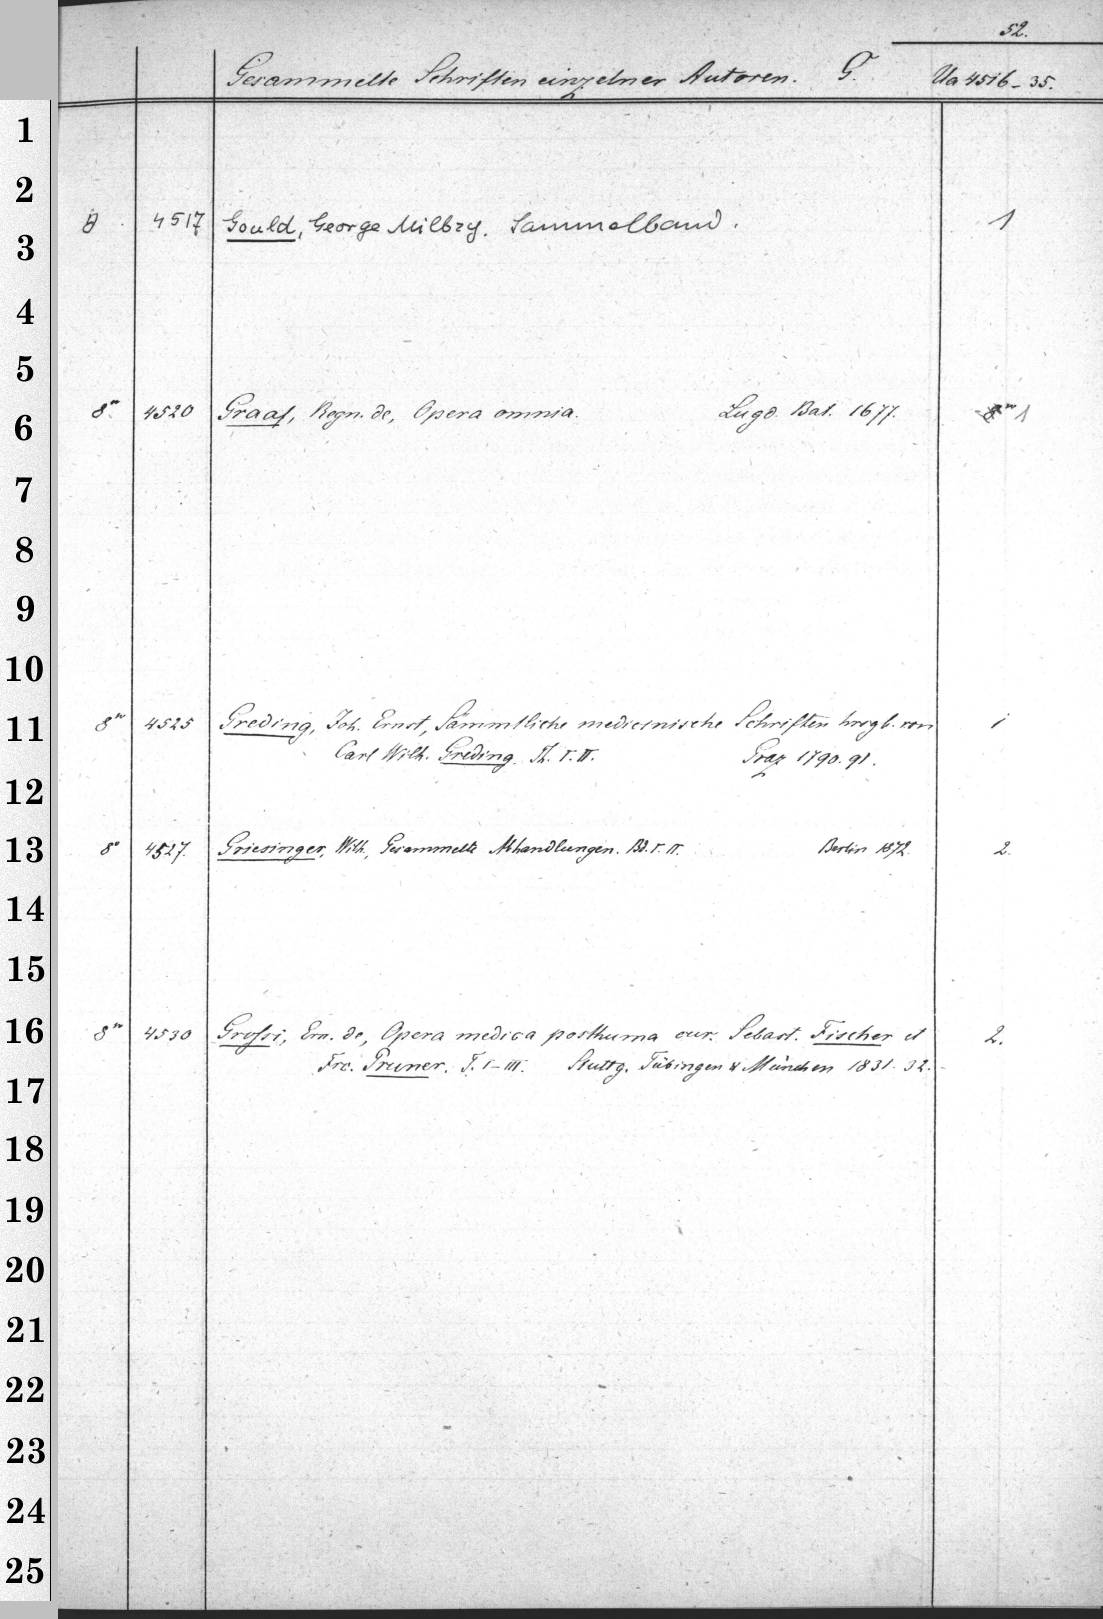 52.
Gesammelte Schriften einzelner Autoren. G. Ua 4516-35.
1
2
8 4517 Gould, George Milbry. Sammelband. 1
3
4
5
8° 4520 Graaf, Regn. de, Opera omnia. Lugd. Bat. 1677. 1
6
7
8
9
10
8° 4525 Greding, Joh. Ernst, Sämmtliche medicinische Schriften hrsgb. von 1
11
Carl Wilh. Greding. Th. I. II. Graz 1790. 91.
12
13 8° 4527. Griesinger, Wilh., Gesammelte Abhandlungen. Bd. I. II. Berlin 1872. 2.
14
15
16 8° 4530 Grossi, Ern. de, Opera medica posthuma cur. Sebast. Fischer et 2.
Frc. Pruner. T. I-III. Stuttg. Tübingen & München 1831. 32.
17
18
19
20
21
22
23
24
25